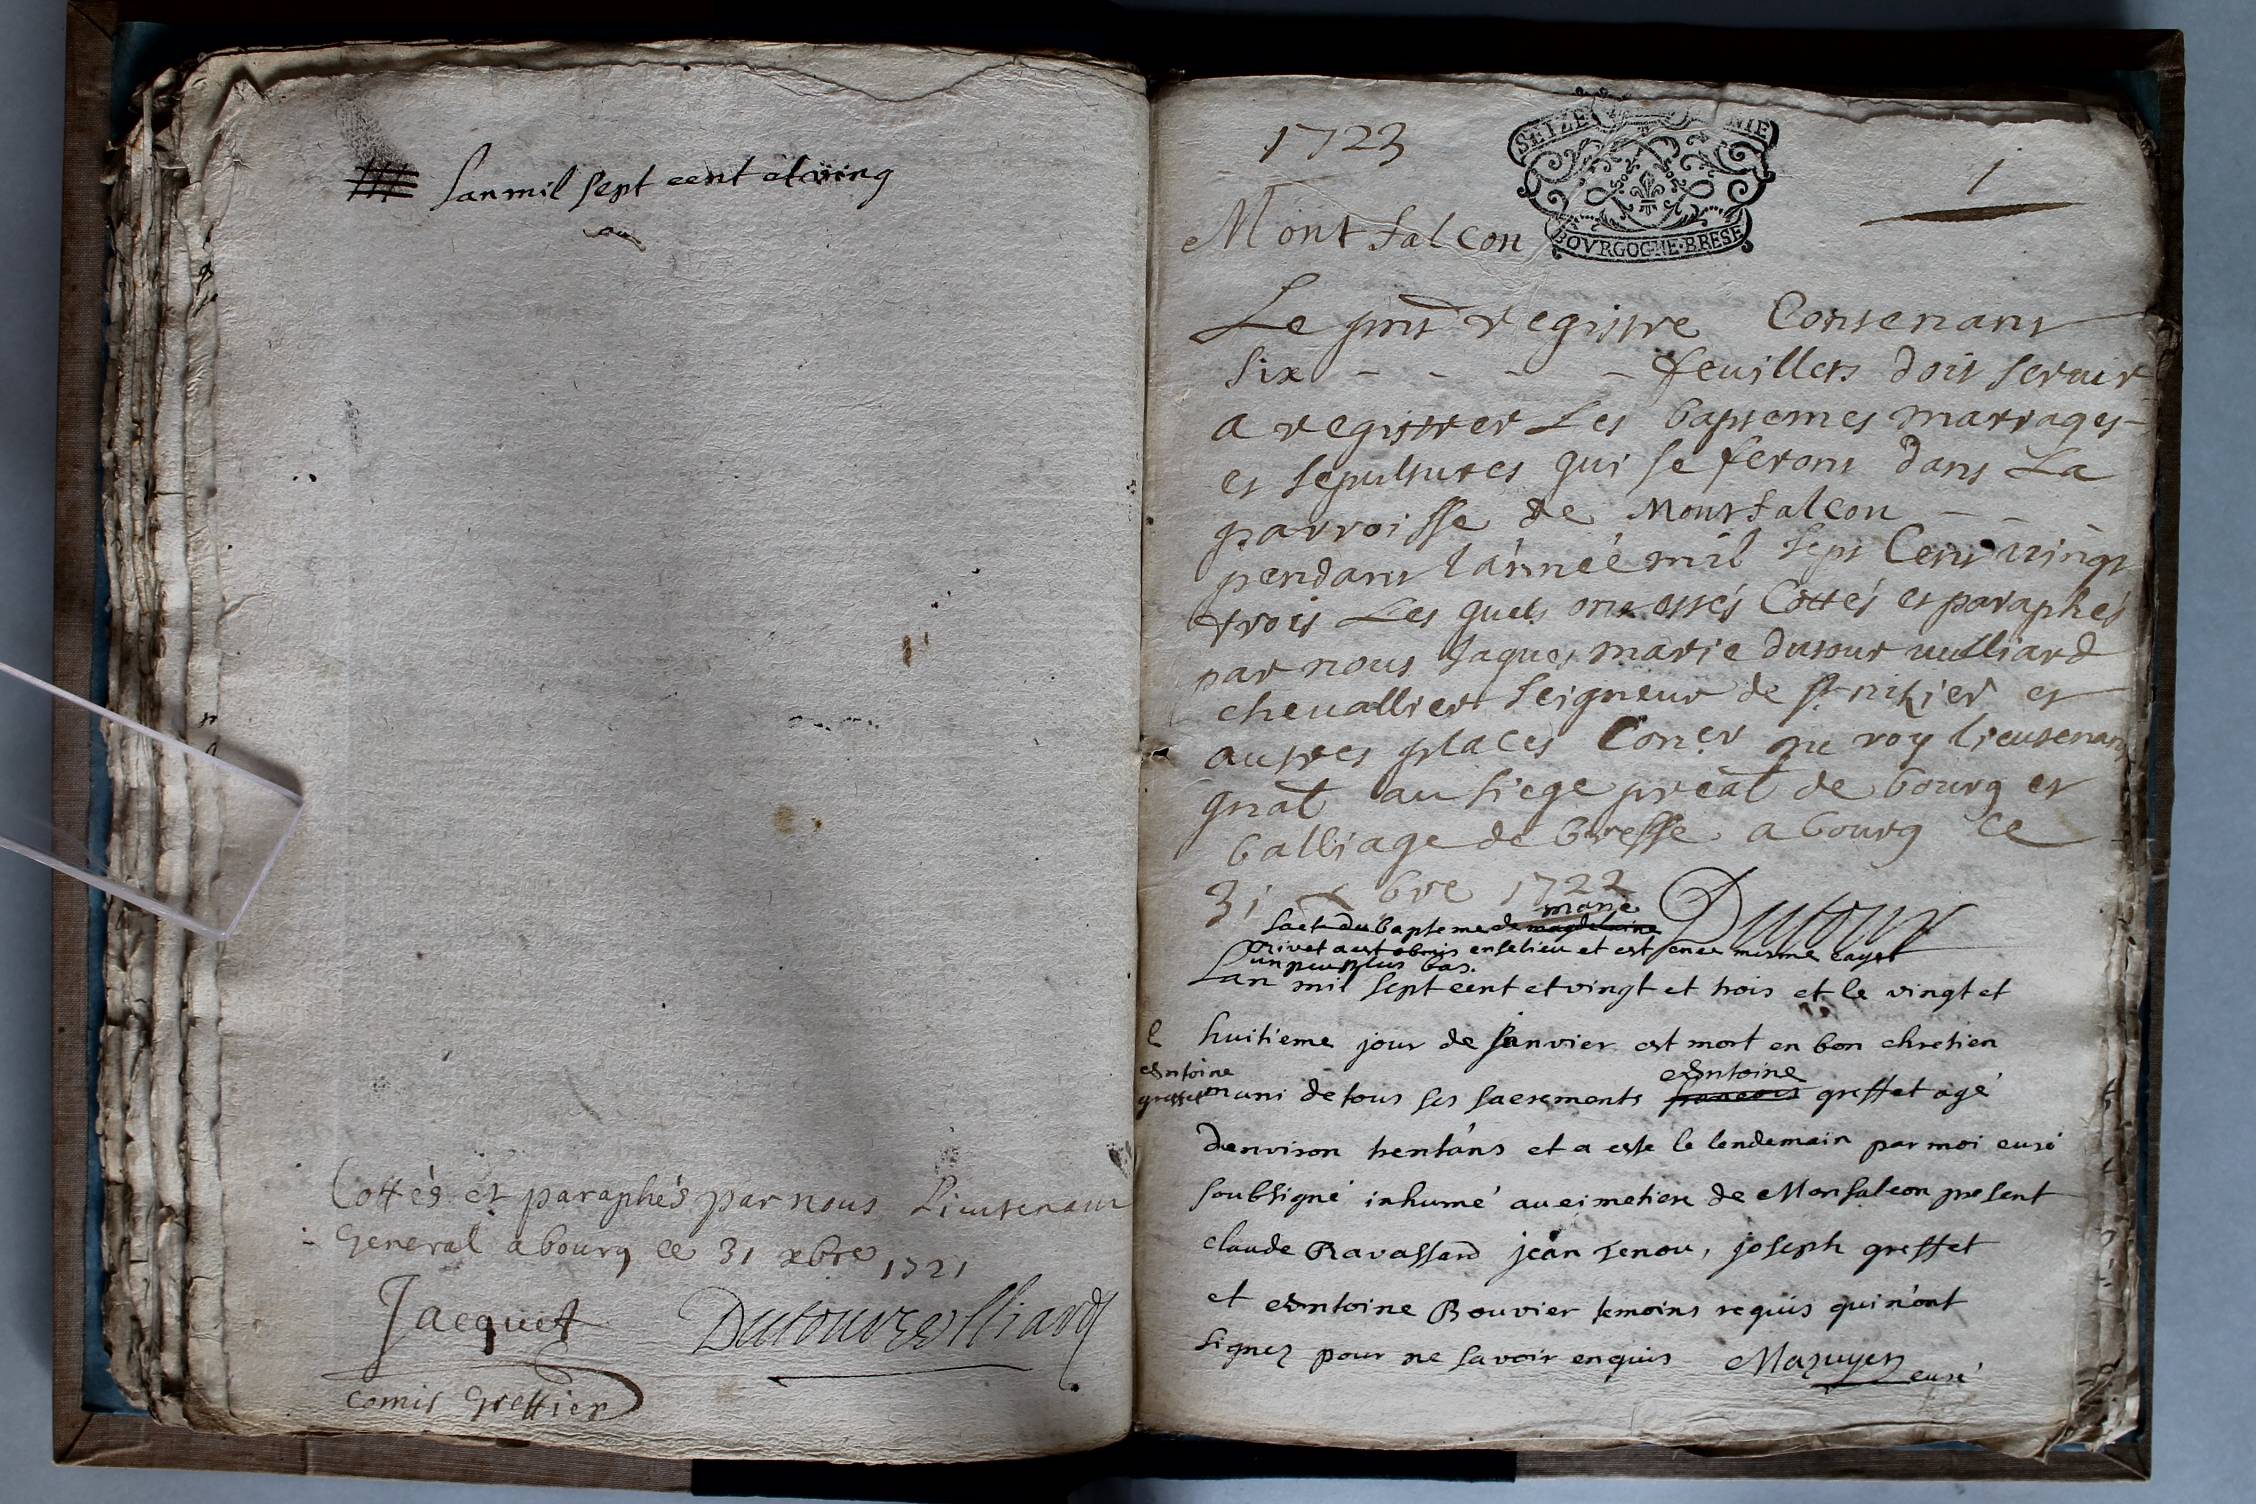 Lan mil sept cent et ving
Cottés et paraphés par nous Lieutenant
General a bourg ce 31 xbre 1721
Jacquet
Dutourvulliard
comis Greffier
1723
SEIZE
NIE
BOVRGOGNE·BRESE
1
Montfalcon
Le pnt registre Contenant
six - - - - feuillets doit servir
a registrer Les baptemes marriages
et sepultures qui se feront dans La
parroisse de Montfalcon - - -
pendant l'année mil sept Cent vingt
trois Les quels ont estés Cottés et paraphés
par nous Jaques marie dutour vulliard
chevallier seigneur de St nizier et
autres places Coner du roy lieutenant
gnal au siege preal de bourg et
balliage de bresse a bourg ce
31 xbre 1722
Dutour
marie
Lacte du bapteme de magdelaine
privet a est obmis en se lieu et est en ce mesme cayer
un peu plus bas.
Lan mil sept cent et vingt et trois et le vingt et
huitieme jour de janvier est mort en bon chretien
Antoine
greffet
Antoine
muni de tous ses sacrements francois greffet agé
denviron trent'ans et a esté le lendemain par moi curé
soubsigné inhumé au cimetiere de Monfalcon present
claude Ravassard jean Tenou, joseph greffet
et Antoine Bouvier temoins requis qui n'ont
signez pour ne savoir enquis Mazuyer
curé